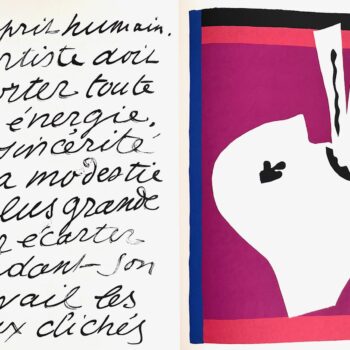 sprit humain.
rtiste doit
orter toute
énergie,
sincérité
a modestie
lus grande
r écarter
dant son
vail les
ux clichés